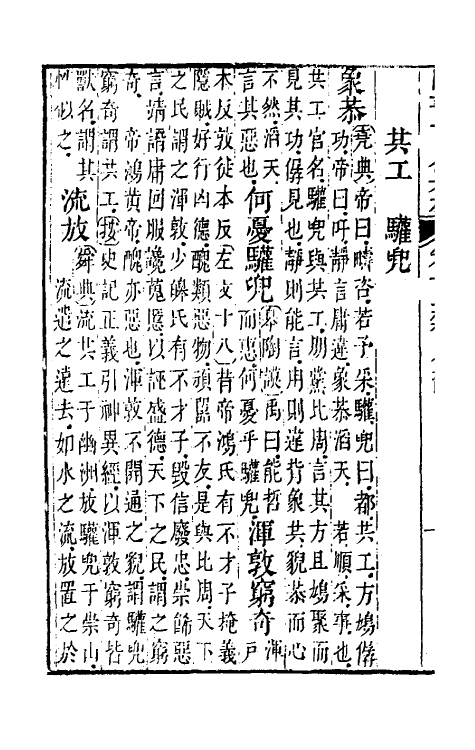 共工　驩兜
象恭
堯典帝曰疇咨若予采驩兜曰都共工方鳩僝
功帝曰吁靜言庸違象恭滔天　若順采事也
共工官名驩兜與共工朋黨比周言其方且鳩聚而
見其功僝見也靜則能言用則違背象共貌恭而心
不然滔天
言其惡也
何憂驩兜
臯陶謨禹曰能哲
而惠何憂乎驩兜
渾敦窮奇
渾
戶
本反敦徒本反左文十八昔帝鴻氏有不才子掩義
隱賊好行凶德醜類惡物頑嚚不友是與比周天下
之民謂之渾敦少皥氏有不才子毀信廢忠崇飾惡
言靖譖庸回服讒蒐慝以誣盛德天下之民謂之窮
奇　帝鴻黃帝醜亦惡也渾敦不開通之貌謂驩兜
窮奇謂共工按史記正義引神異經以渾敦窮奇皆
獸名謂其
性似之
流放
舜典流共工于幽洲放驩兜于崇山
流遣之遠去如水之流放置之於